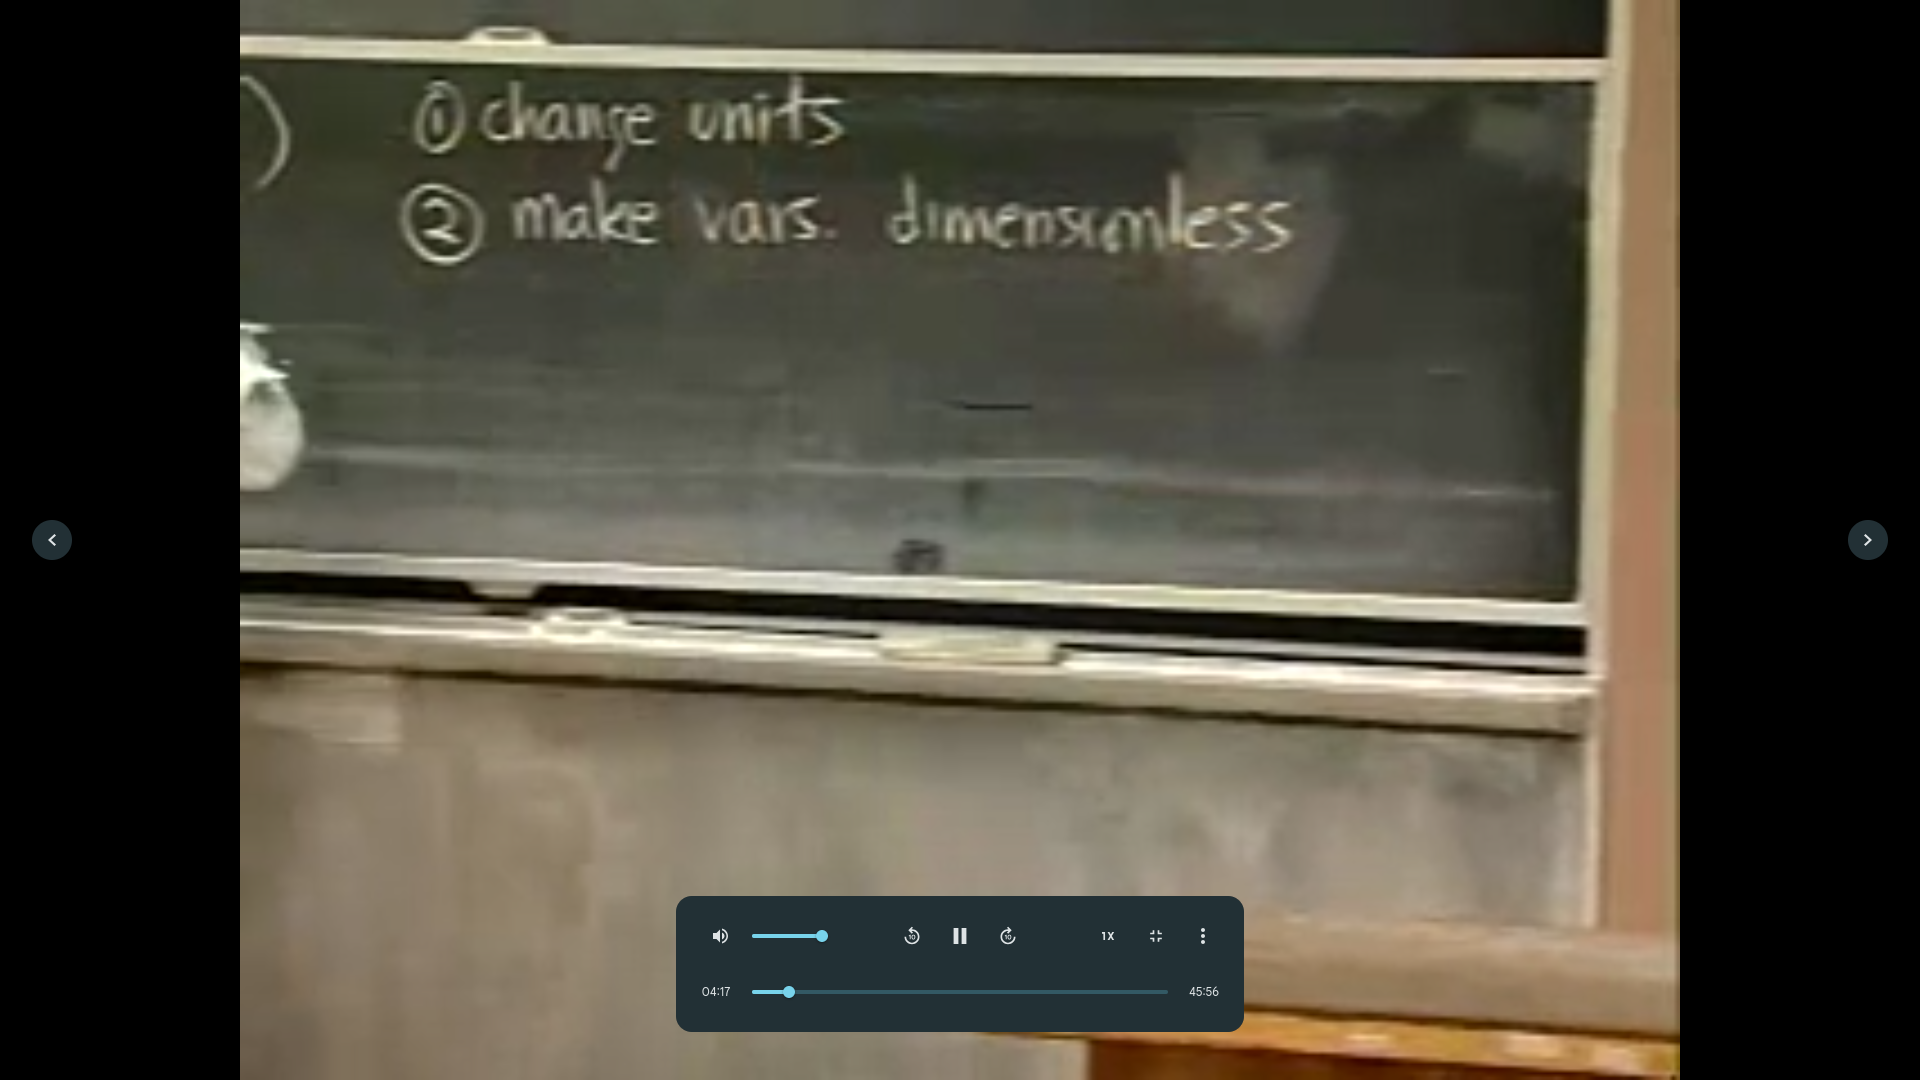 ① change units
② make vars. dimensionless
10
10
1X
04:17
45:56